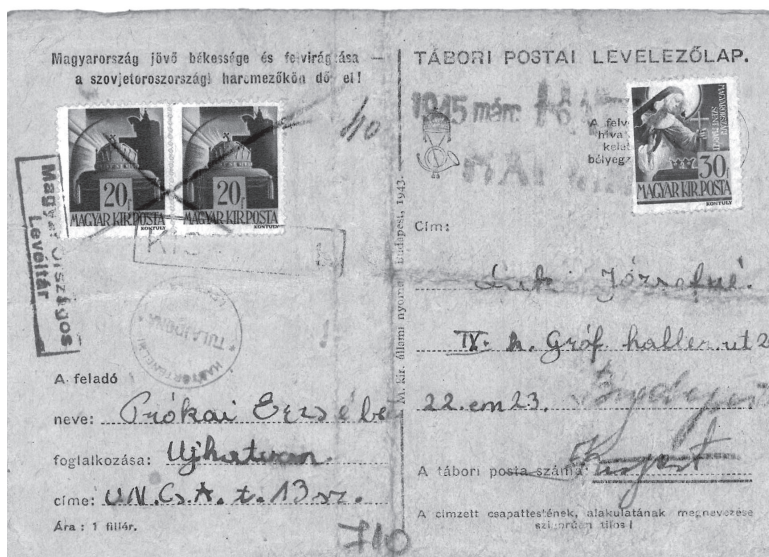 Magyarország jövő békessége és felvirágzása —
a szovjetoroszországi harcmezőkön dől el!
40
20f
MAGYAR KIR. POSTA
KONTULY
20f
MAGYAR KIR. POSTA
KONTULY
Magyar Országos
Levéltár
TULAJDONA
A feladó
neve: Prókai Erzsébet
foglalkozása: Ujhatvan.
címe: U.N.Cs.A. t. 13 sz.
Ára: 1 fillér.
710
M. kir. állami nyomda, Budapest, 1943.
TÁBORI POSTAI LEVELEZŐLAP.
1945 márc 16
A felv
hiva
kelet
bélyegz
30f
MAGYAR KIR. POSTA
KONTULY
Cím:
Józsefné.
IX. k. Gróf haller ut 2
22. em 23. Budapest
A tábori posta száma: Kispest
A címzett csapattestének, alakulatának megnevezése
szigorúan tilos!